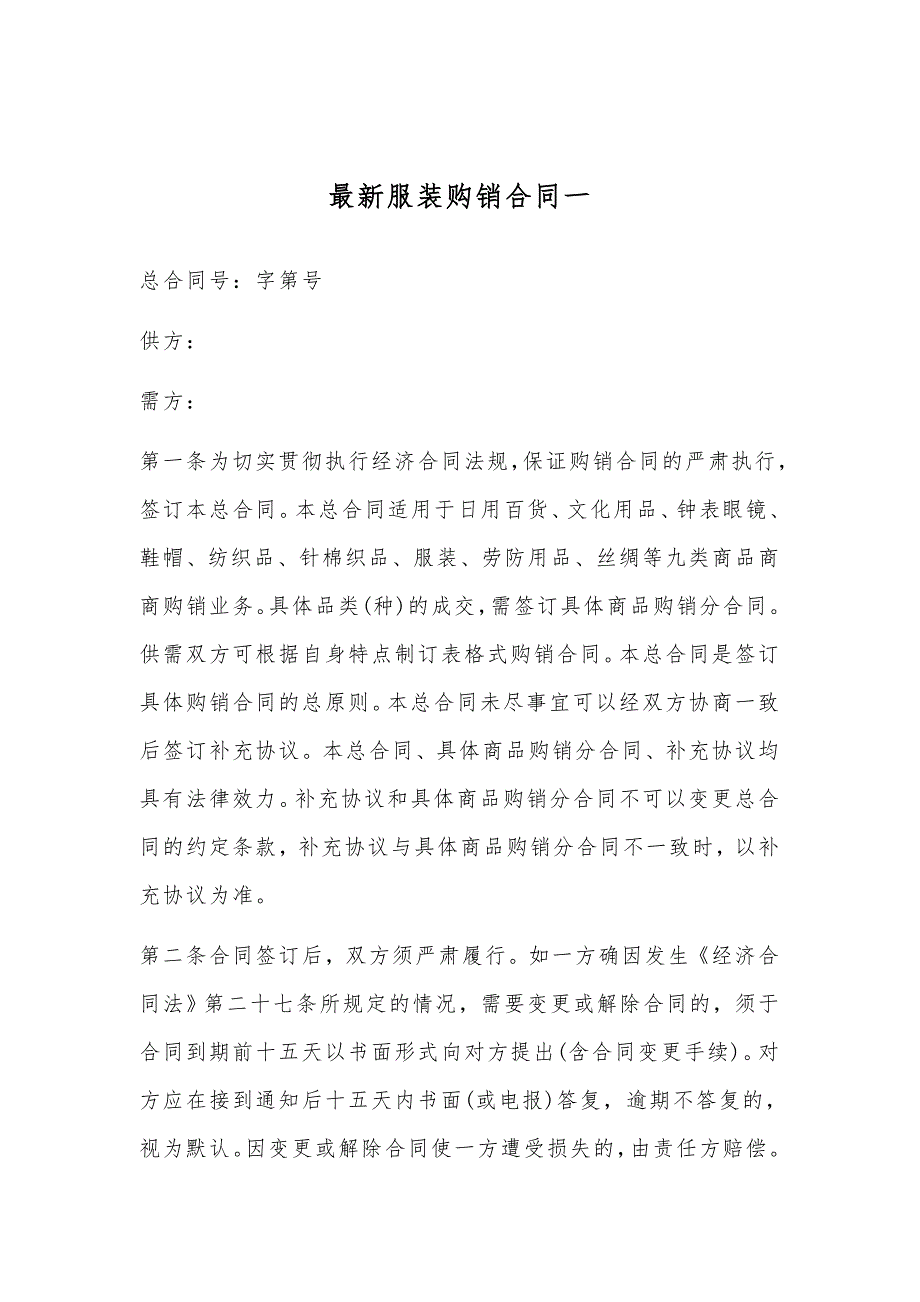 最新服装购销合同一
总合同号：字第号
供方：
需方：
第一条为切实贯彻执行经济合同法规，保证购销合同的严肃执行，
签订本总合同。本总合同适用于日用百货、文化用品、钟表眼镜、
鞋帽、纺织品、针棉织品、服装、劳防用品、丝绸等九类商品商
商购销业务。具体品类(种)的成交，需签订具体商品购销分合同。
供需双方可根据自身特点制订表格式购销合同。本总合同是签订
具体购销合同的总原则。本总合同未尽事宜可以经双方协商一致
后签订补充协议。本总合同、具体商品购销分合同、补充协议均
具有法律效力。补充协议和具体商品购销分合同不可以变更总合
同的约定条款，补充协议与具体商品购销分合同不一致时，以补
充协议为准。
第二条合同签订后，双方须严肃履行。如一方确因发生《经济合
同法》第二十七条所规定的情况，需要变更或解除合同的，须于
合同到期前十五天以书面形式向对方提出(含合同变更手续)。对
方应在接到通知后十五天内书面(或电报)答复，逾期不答复的，
视为默认。因变更或解除合同使一方遭受损失的，由责任方赔偿。